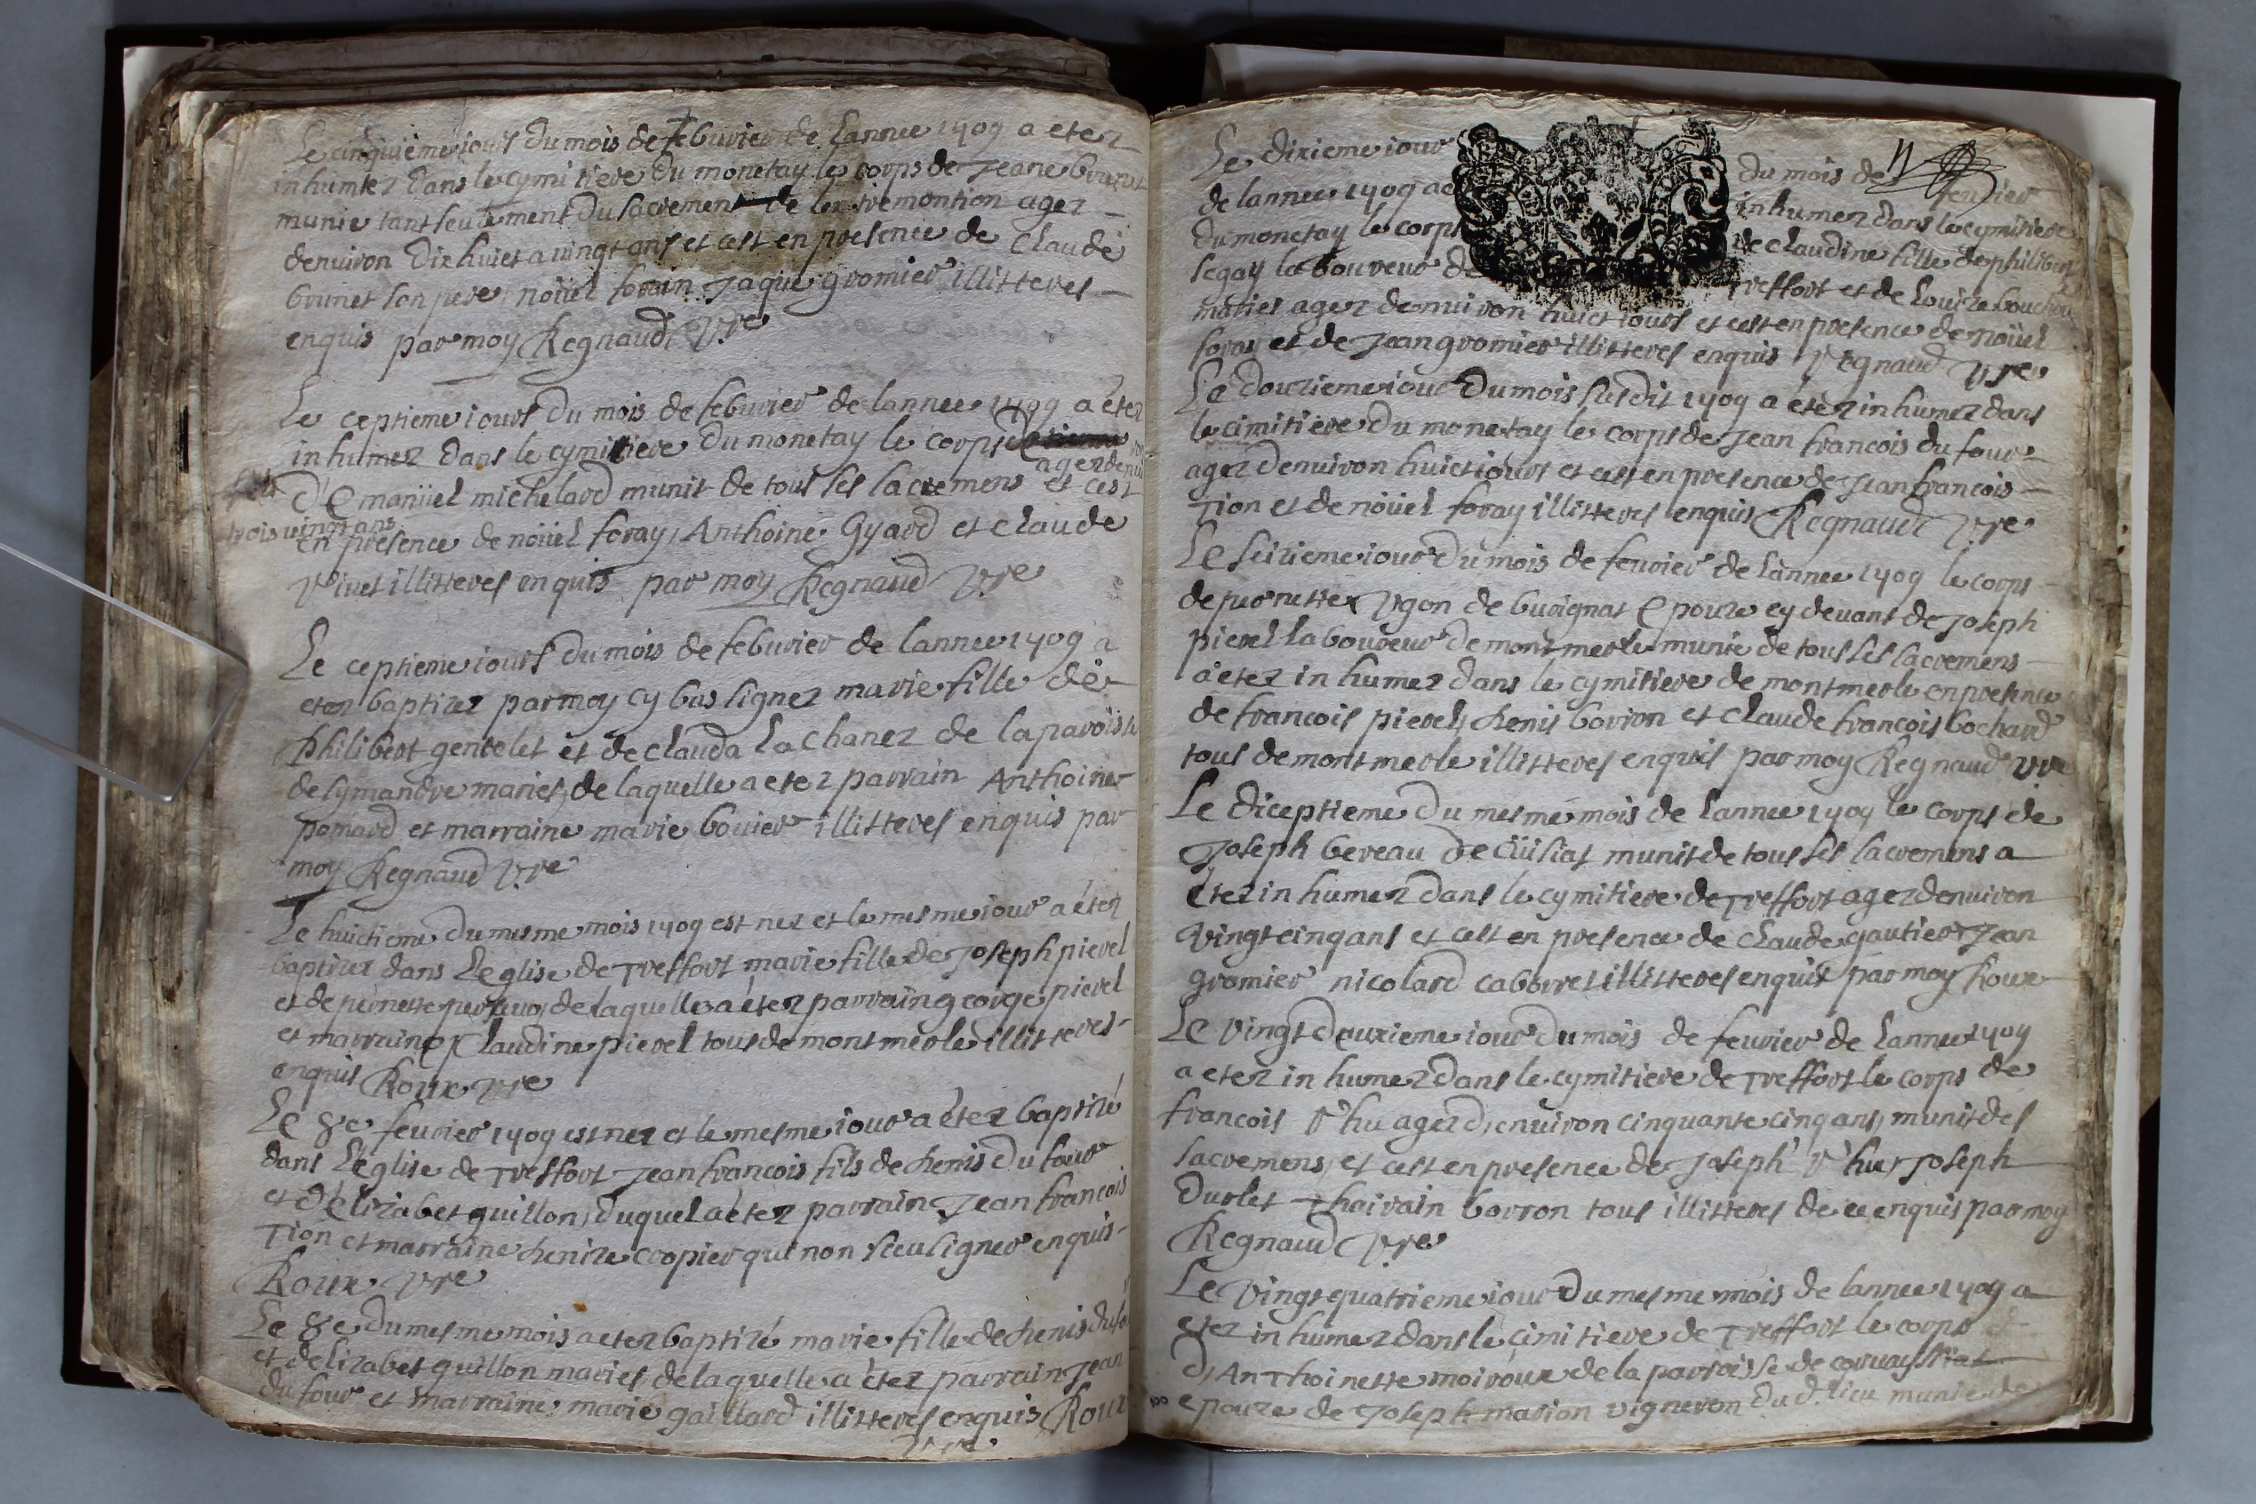 Le cinquieme iours du mois de feburier de lannee 1709 a etez
inhumez dans le cymitiere du monetay le corps de Jeane brunet
munie tant seulement du sacrement de lextremontion agez
denviron dix huict a vingt ans et cest en presence de Claude
brunet son pere, noüel forain Jaque gromier illitteres
enquis par moy Regnaud vre
Le ceptieme iours du mois de feburier de lannee 1709 a etez
inhumez dans le cymitiere du monetay le corps
agez denvi
d'Emanüel michelard munit de tous ses sacremens et cest
trois vingt ans
en presence de noüel foray, Anthoine Gyard et Claude
illitteres enquis par moy Regnaud vre
Le ceptieme iours du mois de feburier de lannee 1709 a
etez baptizez par moy cy bas signez marie fille de
philibert gentelet et de clauda la Chanez de la paroisse
de symandre maries, de laquelle a etez parrain Anthoine
pomard et marraine marie bouvier illitteres enquis par
moy Regnaud vre
Le huictieme du mesme mois 1709 est nez et le mesme iour a étez
baptizez dans L'eglise de Treffort marie fille de Joseph pierel
et de pernette, de laquelle a étez parrain george pierel
et marraine Claudine pierel tous de montmerle illitteres
enquis Roux vre
Le 8e feurier 1709 est nez et le mesme iour a étez baptizé
dans L'eglise de Treffort Jean francois fils de denis du four
et d'elizabet guillon, duquel a étez parrain Jean francois
Tion et marraine denize cropier qui non sceu signer enquis
Roux vre
Le 8e du mesme mois a etez baptizé marie fille de denis dufo
et delizabet guillon maries de laquelle a étez parrain Jean
du four et marraine marie gaillard illitteres enquis Roux
vre
Le dixieme iour du mois de feurier
de lannee 1709 a inhumez dans le cymitiere
du monetay le corps de claudine fille de philibert
segay laboureur de Treffort et de Louize
maries agez denuiron huict iours et cest en presence de noüel
foray et de Jean gromier illitteres enquis Regnaud vre
Le douzieme iour du mois susdit 1709 a étez inhumez dans
le cimitiere du monetay le corps de Jean francois du four
agez denuiron huict iours et cest en presence de Jean francois
Tion et de noüel foray illitteres enquis Regnaud vre
Le seizieme iour du mois de feurier de lannee 1709 le corps
de pernette Ugon de busignat epouze cy devant de Joseph
pierel laboureur de montmerle munie de tous ses sacremens
a etez inhumez dans le cymitiere de montmerle en presence
de francois pierel, denis borron et Claude francois bochard
tous de montmerle illitteres enquis par moy Regnaud vre
Le diceptieme du mesme mois de lannee 1709 le corps de
Joseph bereau de Cüisiat munit de tous ses sacremens a
étez inhumez dans le cymitiere de Treffort agez denuiron
vingt cinq ans et cest en presence de Claude gautier Jean
gromier nicolard caborret illitteres enquis par moy Roux
Le vingt deuxieme iour du mois de feurier de lannee 1709
a etez inhumez dans le cymitiere de Treffort le corps de
francois agez d'enuiron cinquante cinq ans, munit des
sacremens, et cest en presence de Joseph Joseph
durlet borron tous illitteres de ce enquis par moy
Regnaud vre
Le vingt quatrieme iour du mesme mois de lannee 1709 a
etez inhumez dans le cimitiere de Treffort le corps
d'Anthoinette moiroux de la parroisse de corvayssiat
epouze de Joseph marion vigneron du d. lieu munie de